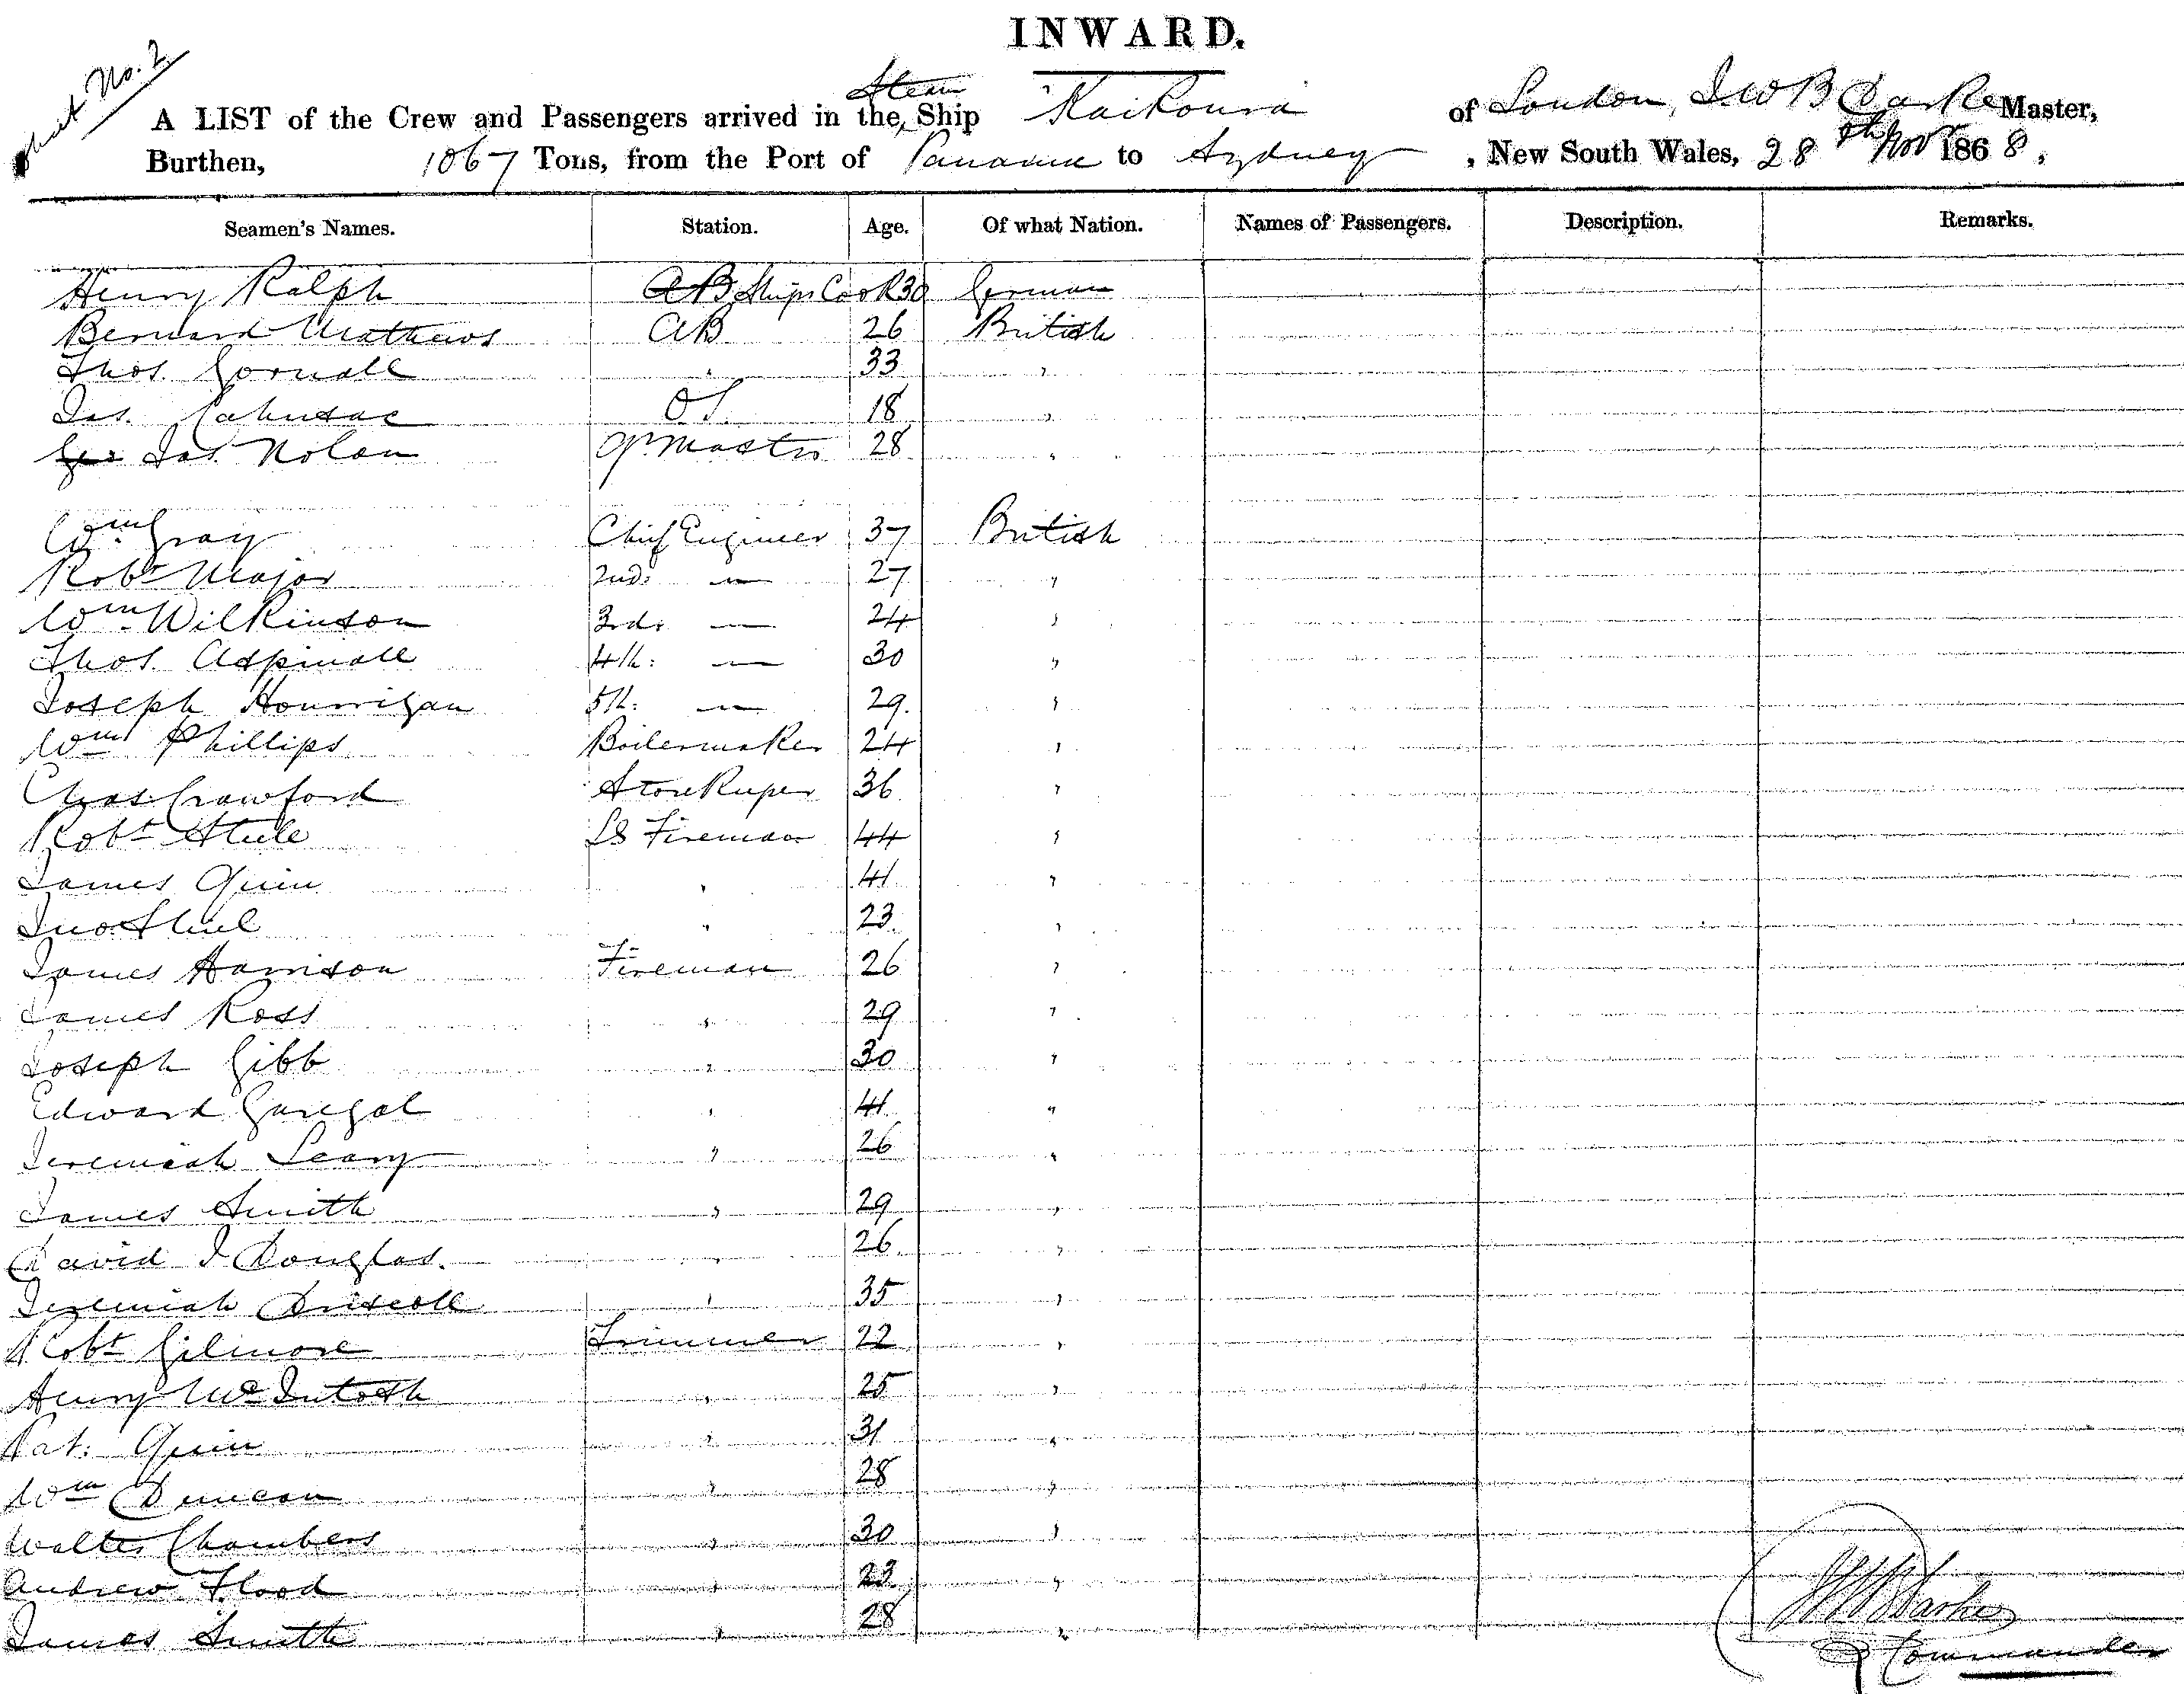 INWARD.
Sheet No. 2
Steam
A LIST of the Crew and Passengers arrived in the Ship Kaikoura of London, J W B Darke Master,
Burthen, 1067 Tons, from the Port of Panama to Sydney, New South Wales, 28th Novr 1868,
Seamen's Names. Station. Age. Of what Nation. Names of Passengers. Description. Remarks.
Henry Ralph AB Ships Cook 30 German
Bernard Mathews AB 26 British
Thos. Gornall " 33 "
Jas. Cahusac OS. 18 "
Geo Jas. Nolan Qr Master 28 "
Wm Gray Chief Engineer 37 British
Robt Major 2nd: — 27 "
Wm Wilkinson 3rd: — 24 "
Thos. Aspinall 4th: — 30 "
Joseph Hourrigan 5th: — 29. "
Wm Phillips Boilermaker 24 "
Chas. Crawford Storekeeper 36 "
Robt Steele LS Fireman 44 "
James Quin " 41 "
Jno. " 23 "
James Harrison Fireman 26 "
James Ross " 29 "
Joseph Gibb " 30 "
Edward " 41 "
Jeremiah Leary " 26 "
James Smith " 29 "
David J Douglas. " 26 "
Jeremiah Driscoll " 35 "
Robt Gilmore Trimmer 22 "
Henry McIntosh " 25 "
Pat: Quin " 31 "
Wm Duncan " 28 "
Walter Chambers " 30 "
Andrew Flood " 23 "
James Smith " 28 "
JWB Darke
Commander